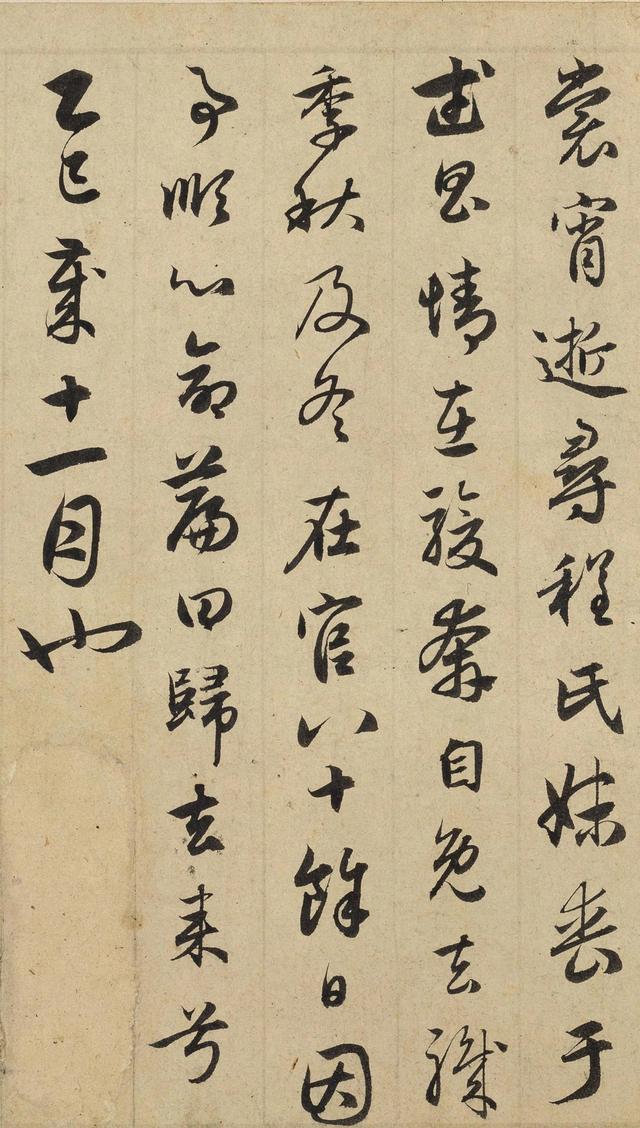 裳宵逝尋程氏妹喪于
武昌情在駿奔自免去職
季秋及冬在官八十餘日因
事順心命篇曰歸去来兮
乙巳歲十一月也